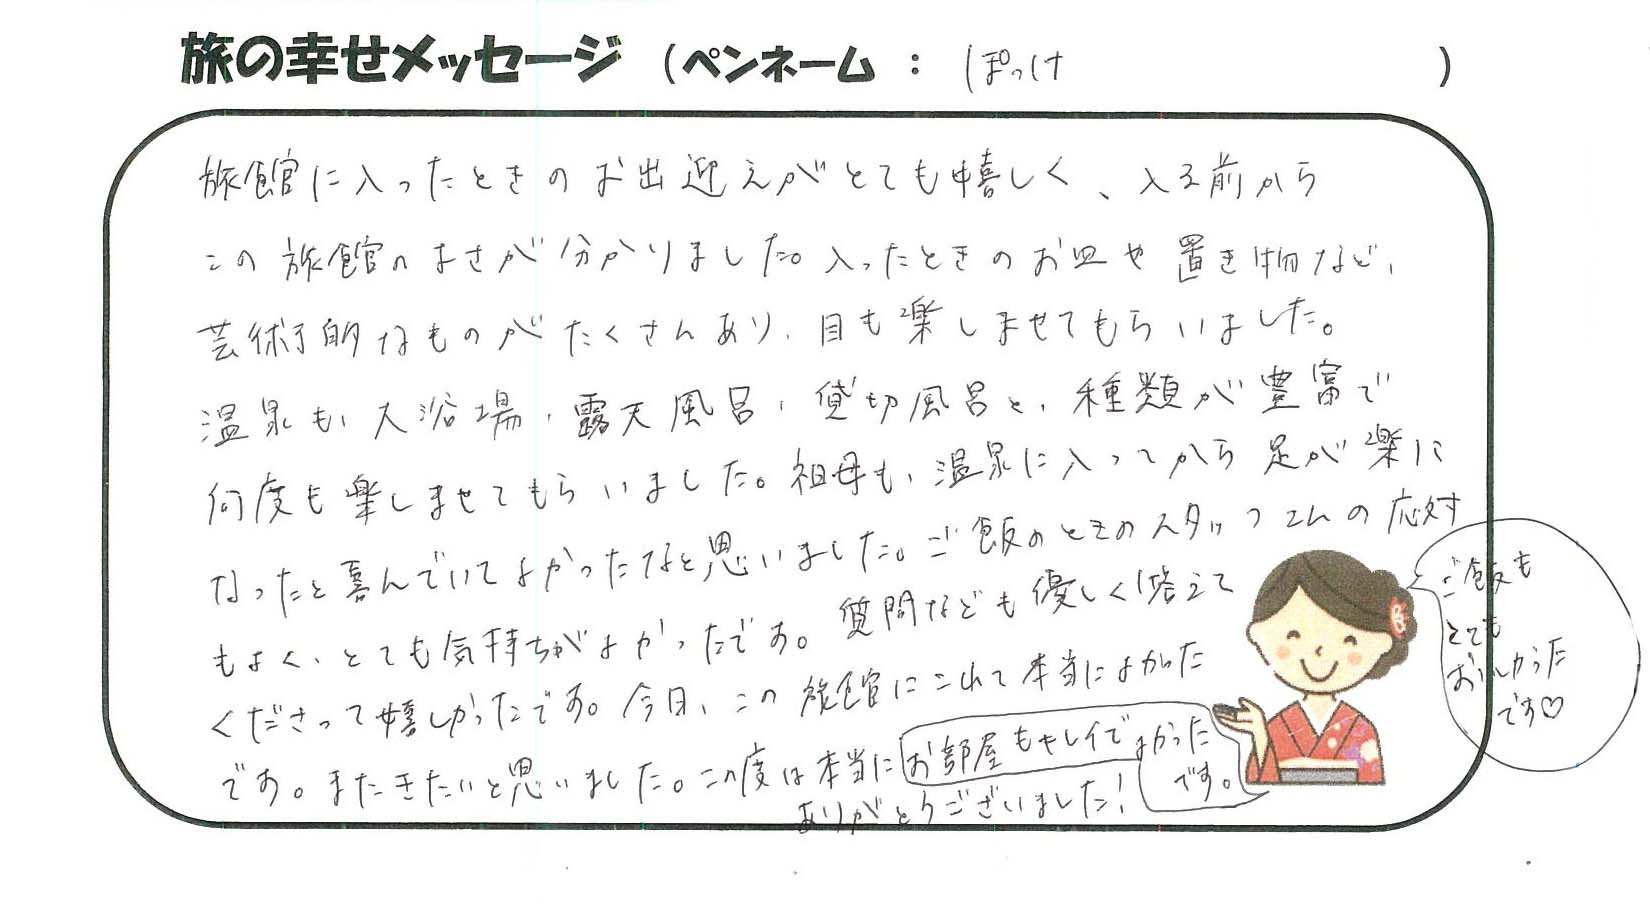 旅の幸せメッセージ (ペンネーム : ぽっけ )
旅館に入ったときのお出迎えがとても嬉しく、入る前から
この旅館のよさが分かりました。入ったときのお皿や置き物など、
芸術的なものがたくさんあり、目も楽しませてもらいました。
温泉も、大浴場、露天風呂、貸切風呂と、種類が豊富で
何度も楽しませてもらいました。祖母も、温泉に入ってから足が楽に
なったと喜んでいてよかったなと思いました。ご飯のときのスタッフさんの応対
もよく、とても気持ちがよかったです。質問なども優しく答えて
くださって嬉しかったです。今日、この旅館にこれて本当によかった
です。またきたいと思いました。この度は本当に
ありがとうございました!
お部屋もキレイでよかった
です。
ご飯も
とても
おいしかった
です♡